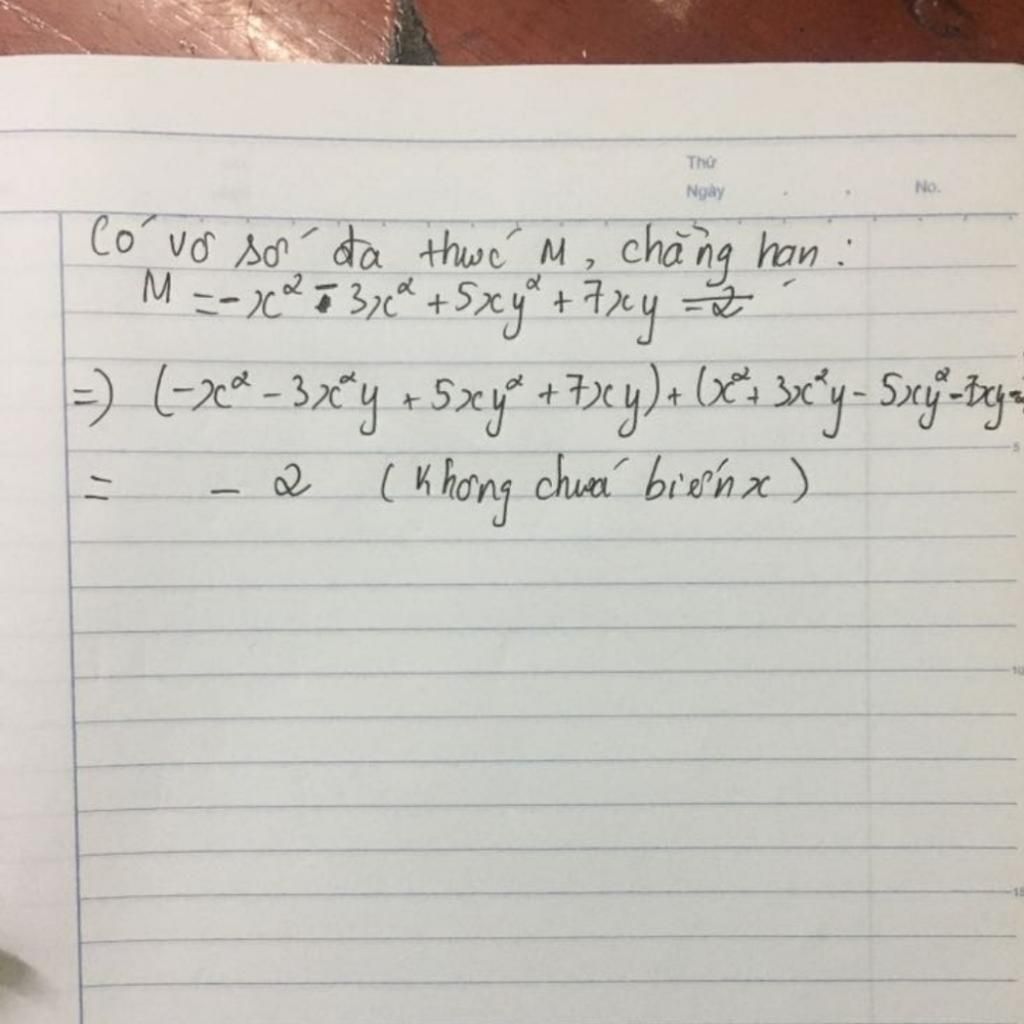 Thứ
Ngày . . No.
Có vô số đa thức M, chẳng hạn:
M = -x² - 3x² + 5xy² + 7xy - 2
=) (-x² - 3x²y + 5xy² + 7xy) + (x² + 3x²y - 5xy² - 7xy -
= - 2 (không chứa biến x)
5
10
15